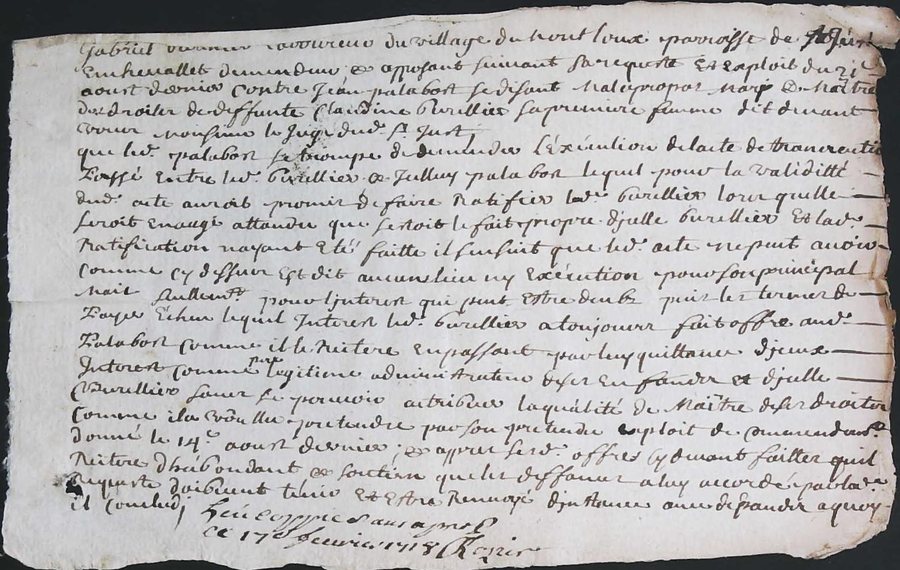 laboureur du village du Montloux parroisse de St Just
En chevallet demendeur & opposant suivant sa requeste Et exploit du 21e
aoust dernier Contre Jean palabost se disant Mal apropos Mary & Maître
des droites de deffunte Claudine burellier sa premiere famme dit devant
vous Monsieur le Juge dud. St Just
que led. palabost se trompe de demender l'Exécution de lacte de transaction
Passé Entre led. burellier & palabost lequel pour la validitté
dud. acte auroit promis de faire Ratifier lad. burellier lors quelle
seroit En aage attandu que sestoit le fait propre dycelle burellier Et lad.
Ratification nayant Eté faitte il sensuit que led. acte ne peut avoir
comme cy dessus Est dit aucun lieu ny Exécution pour son principal
Mais seullemt. pour l'interest qui peut Estre deub puis les termes de
Payes Echeu lequel Interest led. burellier a toujours fait offre aud.
Palabost comme il le Reitere en passant par luy quittance dyceux
Interest comme pere legitime administrateur de ses Enfandz & dycelle
Burellier sans se pouvoir attribuer la quálité de Maître de ses droites
comme il a voullu pretendre par son pretendu exploit de commendemt.
donné le 14e. aoust dernier, & appres sesd. offres cy devant faittes quil
Reitere d'habondant & soutien que les deffances a luy accordé par lad.
Requeste doibvent tenir Et Estre Renvoyé d'instance avec dépandz a quoy
il conclud
ce 17e. febvrier 1718